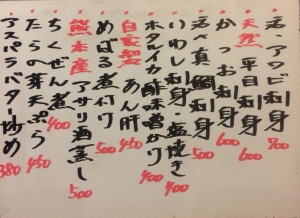 活・アワビ刺身 700
天然 平目刺身 600
かつお刺身 600
活〆真鯛刺身 500
いわし刺身・塩焼き 400
ホタルイカ酢味噌かけ 400
自家製 あん肝 450
めばる煮付け 500
熊本産 アサリ酒蒸し 500
ちくぜん煮 400
たらの芽天ぷら 450
アスパラバター炒め 380